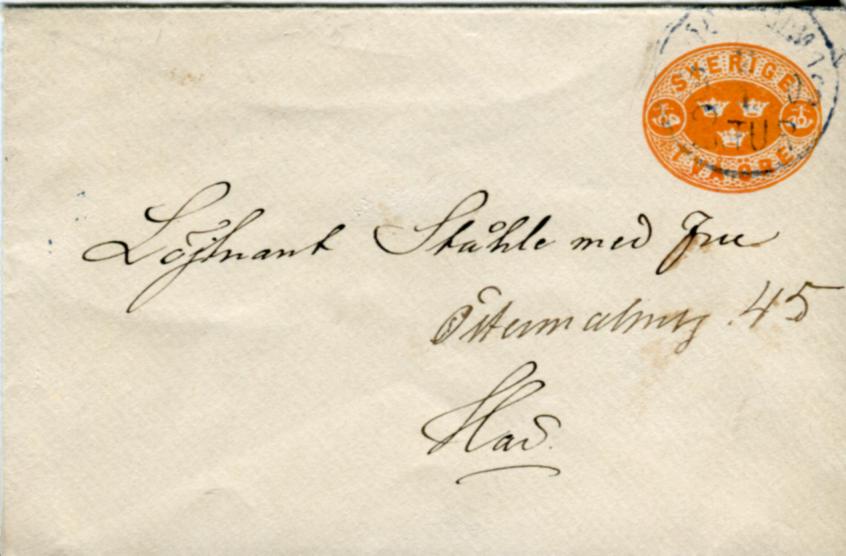 SVERIGE
TVÅ ÖRE
Löjtnant Ståhle med Fru
Östermalmsg. 45
Här.